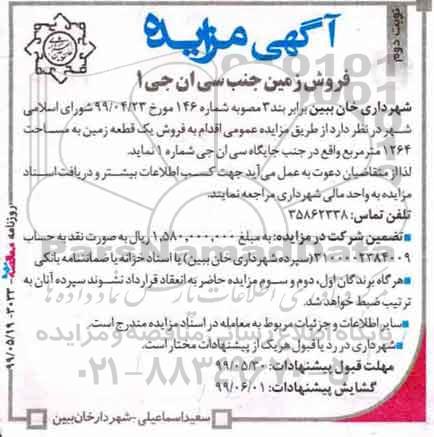 نوبت دوم
آگهی مزایده
فروش زمین جنب سی ان جی ۱
شهرداری خان ببین برابر بند ۳ مصوبه شماره ۱۴۶ مورخ ۹۹/۰۴/۲۳ شورای اسلامی
شهر در نظر دارد از طریق مزایده عمومی اقدام به فروش یک قطعه زمین به مساحت
۱۲۶۴ مترمربع واقع در جنب جایگاه سی ان جی شماره ۱ نماید.
لذا از متقاضیان دعوت به عمل می آید جهت کسب اطلاعات بیشتر و دریافت اسناد
مزایده به واحد مالی شهرداری مراجعه نمایند.
تلفن تماس: ۳۵۸۶۲۳۳۸
تضمین شرکت در مزایده: به مبلغ ۱,۵۸۰,۰۰۰,۰۰۰ ریال به صورت نقد به حساب
۳۱۰۰۰۰۲۳۸۴۰۰۹ (سپرده شهرداری خان ببین) یا اسناد خزانه یا ضمانتنامه بانکی
هرگاه برندگان اول، دوم و سوم مزایده حاضر به انعقاد قرارداد نشوند سپرده آنان به
ترتیب ضبط خواهد شد.
سایر اطلاعات و جزئیات مربوط به معامله در اسناد مزایده مندرج است.
شهرداری در رد یا قبول هر یک از پیشنهادات مختار است.
مهلت قبول پیشنهادات: ۹۹/۰۵/۳۰
گشایش پیشنهادات: ۹۹/۰۶/۰۱
سعید اسماعیلی - شهردار خان ببین
روزنامه
۳۰۳۳ - ۹۹/۰۵/۱۹